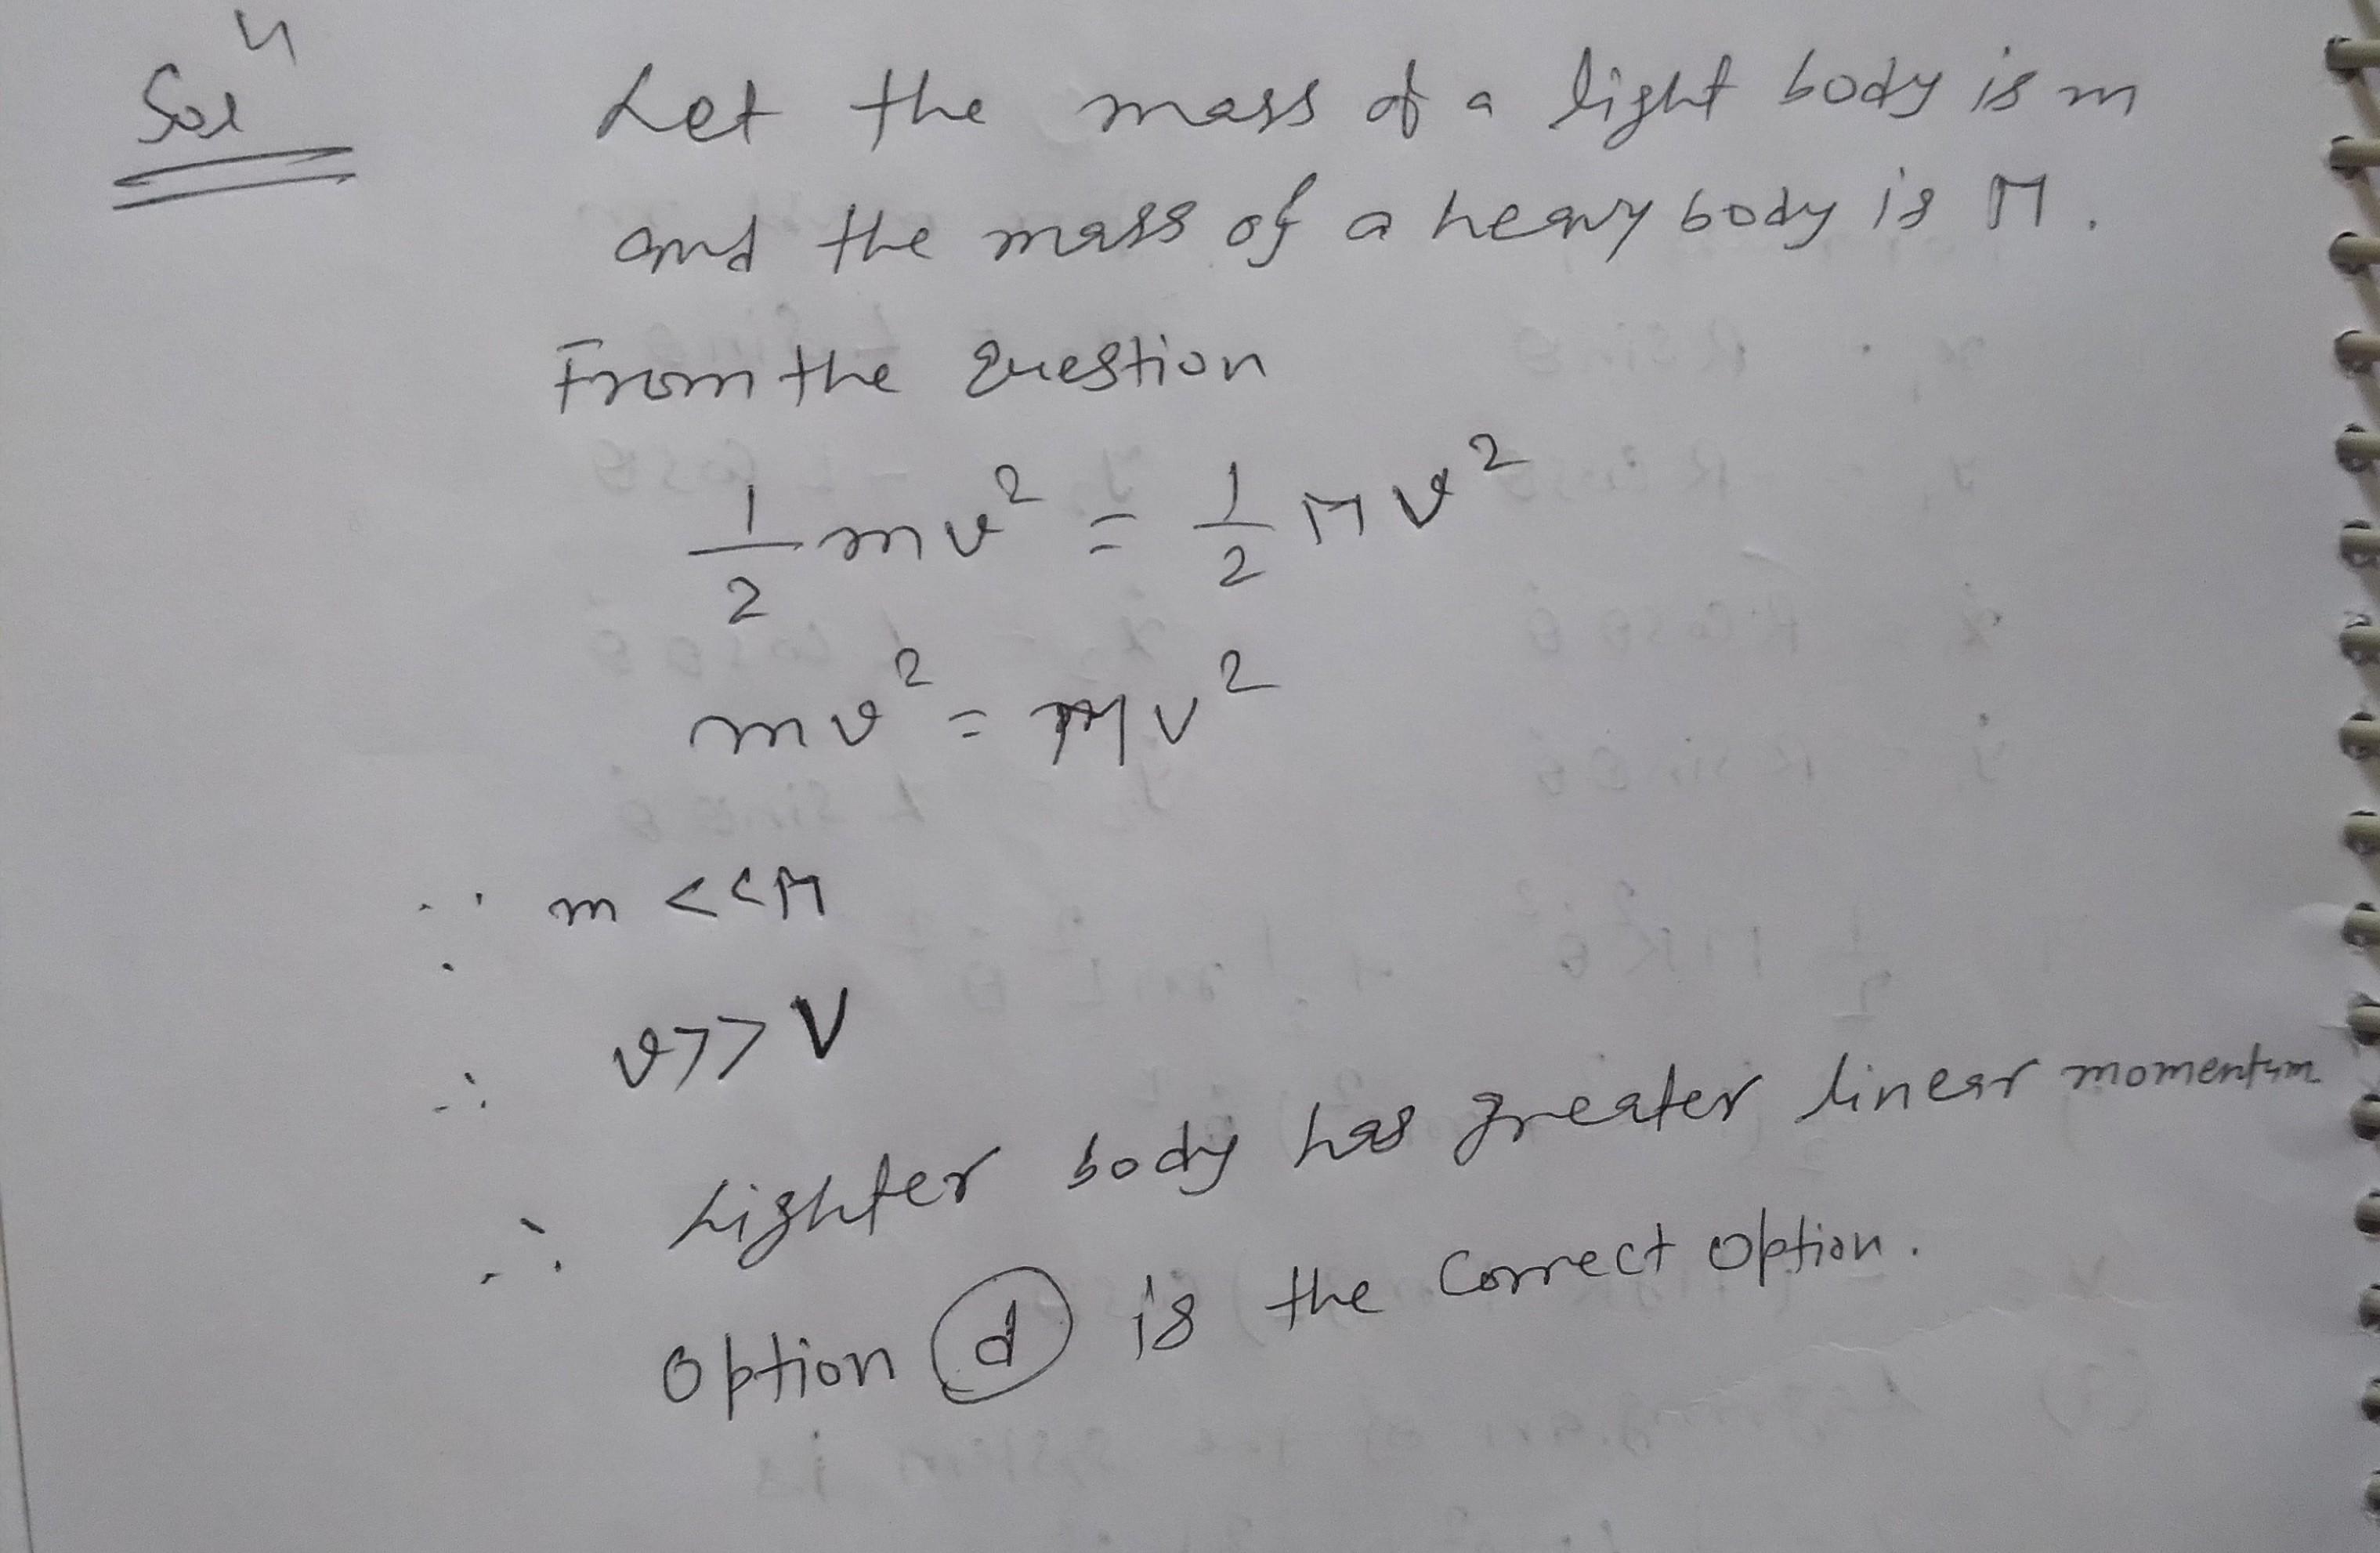 Solⁿ Let the mass of a light body is m
and the mass of a heavy body is M.
From the question
1/2 mv² = 1/2 MV²
mv² = MV²
∵ m << M
∴ v >> V
∴ Lighter body has greater linear momentum
Option (d) is the correct option.